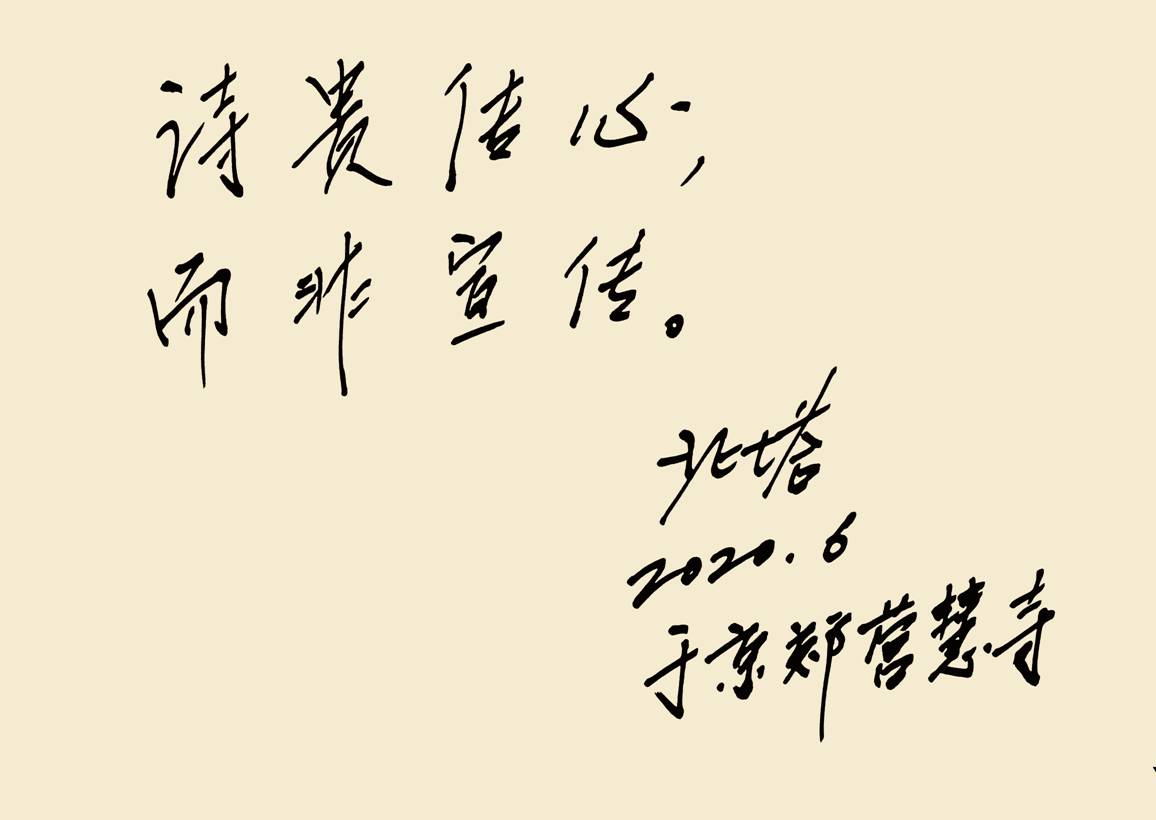 诗贵传心，
而非宣传。
北塔
2020.6
于京郊营慧寺